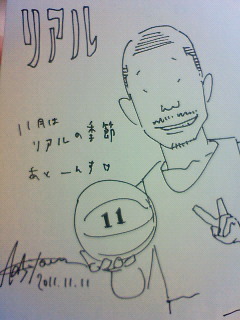 リアル
11月は
リアルの季節
あと一んす
11
2011.11.11